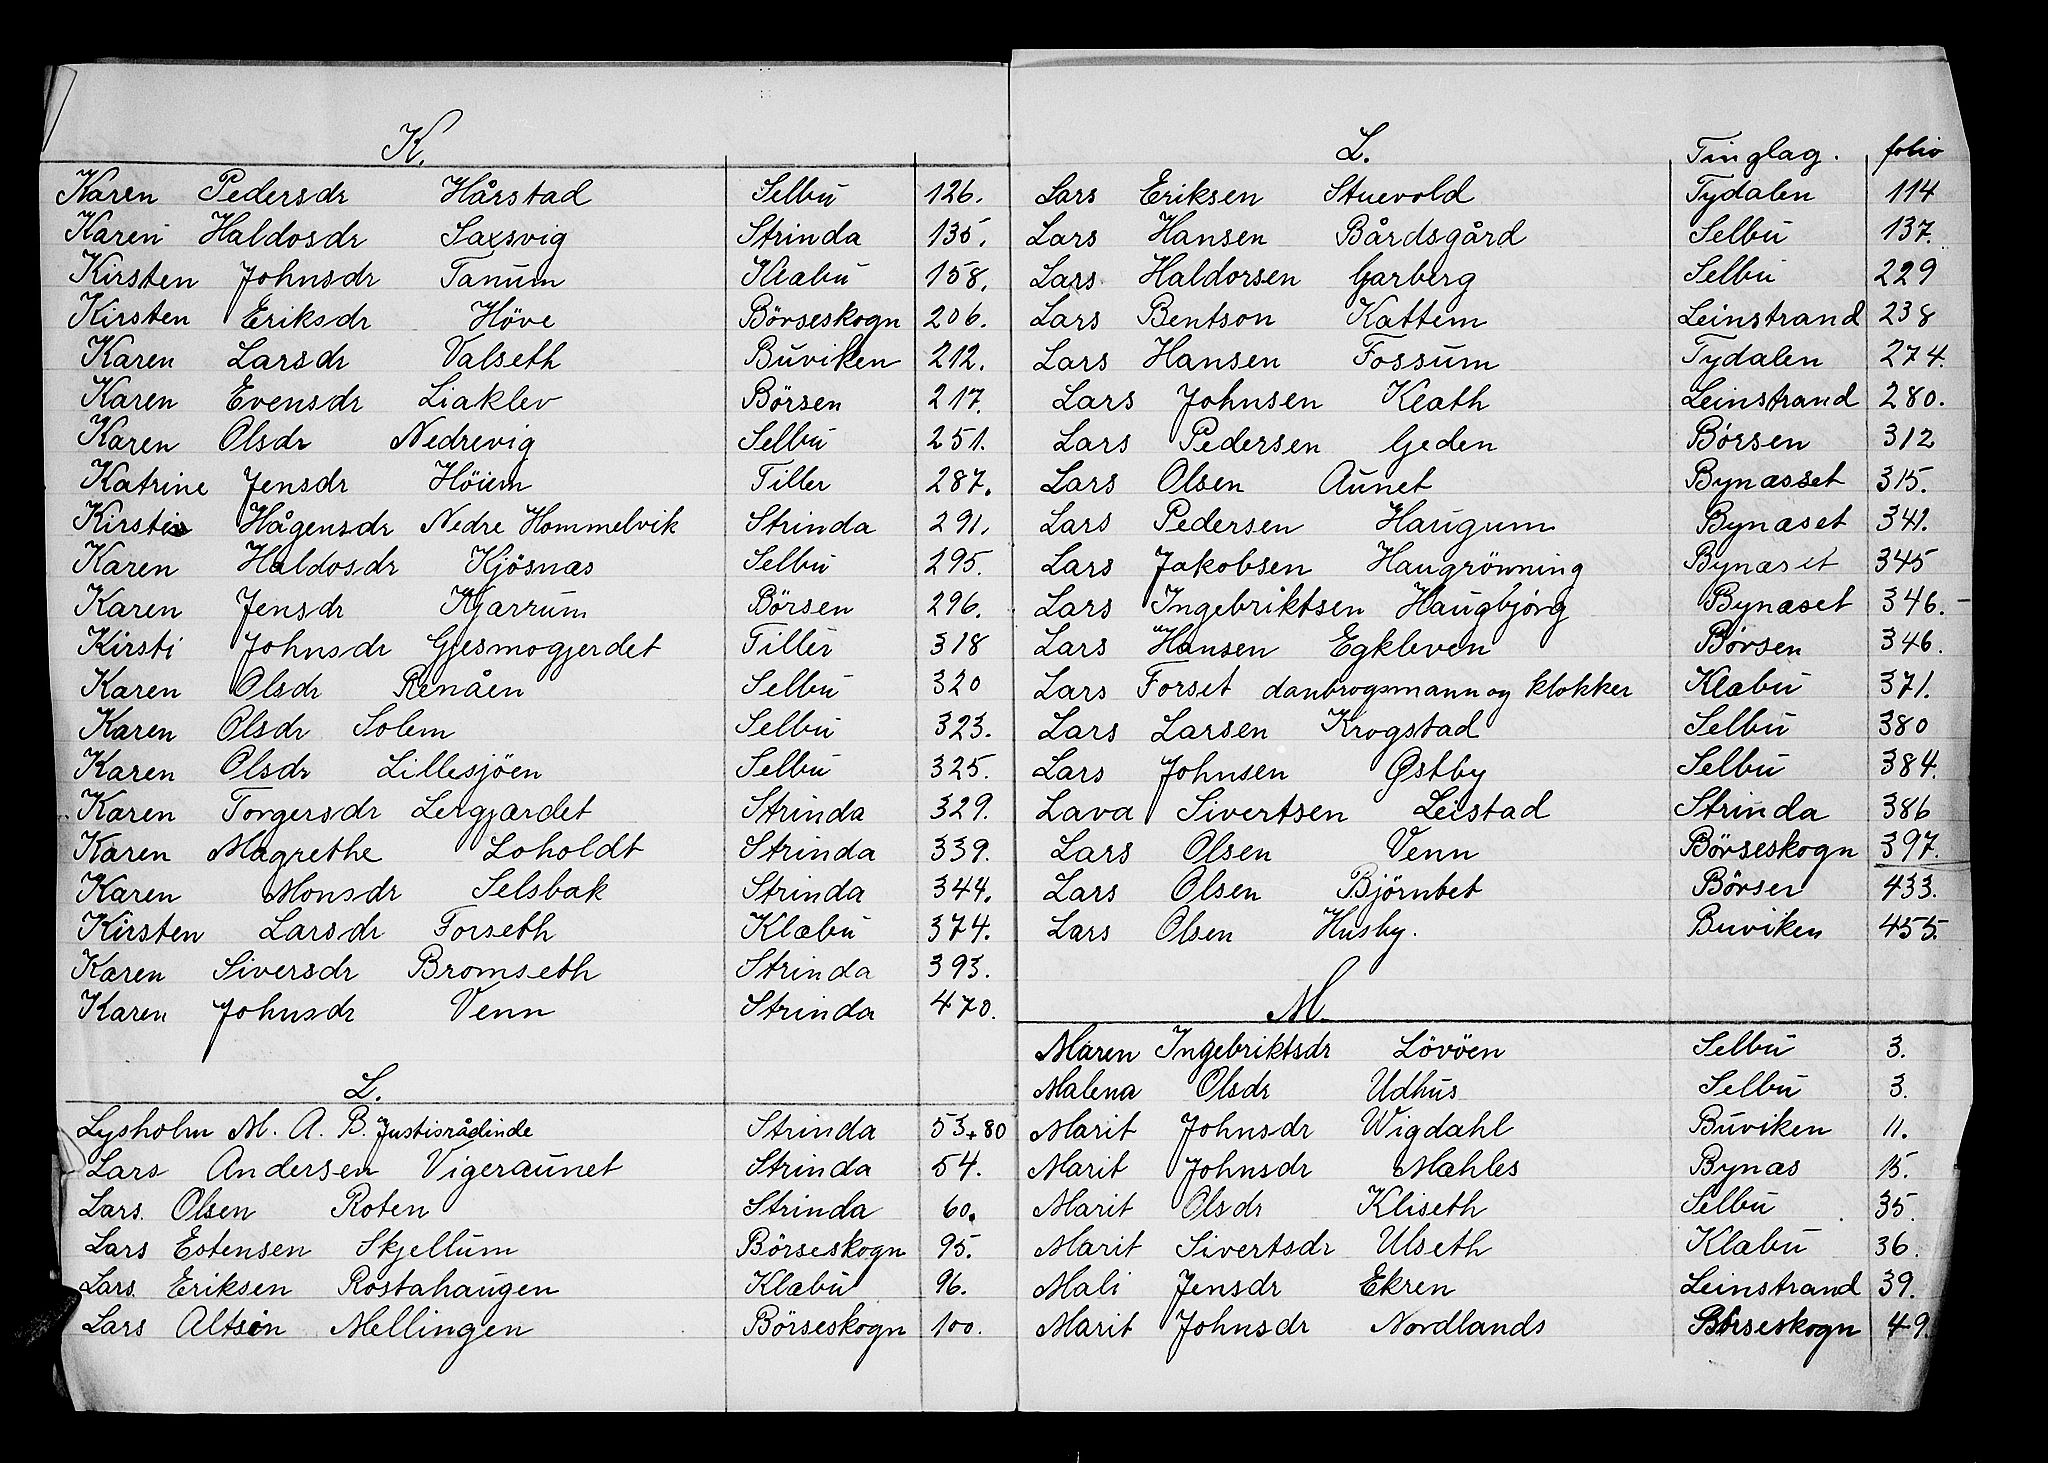 K.
Karen Pedersdr Hårstad Selbu 126.
Karen Haldosdr Saxsvig Strinda 135.
Kirsten Johnsdr Tanum Klæbu 158.
Kirsten Eriksdr Höve Börseskogn 206.
Karen Larsdr Valseth Buviken 212.
Karen Evensdr Liaklev Börsen 217.
Karen Olsdr Nedrevig Selbu 251.
Katrine Jensdr Höium Tiller 287.
Kirsti Hågensdr Nedre Hommelvik Strinda 291.
Karen Haldosdr Kjösnæs Selbu 295.
Karen Jensdr Kjærrum Börsen 296.
Kirsti Johnsdr Gjesmogjerdet Tiller 318
Karen Olsdr Renåen Selbu 320
Karen Olsdr Solem Selbu 323.
Karen Olsdr Lillesjöen Selbu 325.
Karen Torgersdr Lergjærdet Strinda 329.
Karen Magrethe Loholdt Strinda 339.
Karen Monsdr Selsbak Strinda 344.
Kirsten Larsdr Forseth Klæbu 374.
Karen Siversdr Bromseth Strinda 393.
Karen Johnsdr Venn Strinda 470.
L.
Lysholm M. A. B. Justisrådinde Strinda 53+80
Lars Andersen Vigeraunet Strinda 54.
Lars Olsen Roten Strinda 60.
Lars Estensen Skjellum Börseskogn 95.
Lars Eriksen Rostahaugen Klæbu 96.
Lars Altsen Mellingen Börseskogn 100.
L. Tinglag. folio
Lars Eriksen Stuevold Tydalen 114
Lars Hansen Bårdsgård Selbu 137.
Lars Haldorsen Garberg Selbu 229
Lars Bentson Kattem Leinstrand 238
Lars Hansen Fossum Tydalen 274.
Lars Johnsen Klæth Leinstrand 280.
Lars Pedersen Geden Børsen 312
Lars Olsen Aunet Bynæsset 315.
Lars Pedersen Haugum Bynæset 341.
Lars Jakobsen Haugrönning Bynæset 345
Lars Ingebriktsen Haugbjörg Bynæset 346.
Lars Hansen Egkleven Børsen 346.
Lars Forset danbrogsmann og klokker Klæbu 371.
Lars Larsen Krogstad Selbu 380
Lars Johnsen Østby Selbu 384.
Lava Sivertsen Leistad Strinda 386
Lars Olsen Venn Børseskogn 397.
Lars Olsen Björnbet Börsen 433.
Lars Olsen Husby. Buviken 455.
M.
Maren Ingebriktsdr Lövöen Selbu 3.
Malena Olsdr Udhus Selbu 3.
Marit Johnsdr Wigdahl Buviken 11.
Marit Johnsdr Mahles Bynæs 15.
Marit Olsdr Kliseth Selbu 35.
Marit Sivertsdr Ulseth Klæbu 36.
Mali Jensdr Ekren Leinstrand 39.
Marit Johnsdr Nordlands Børseskogn 49.